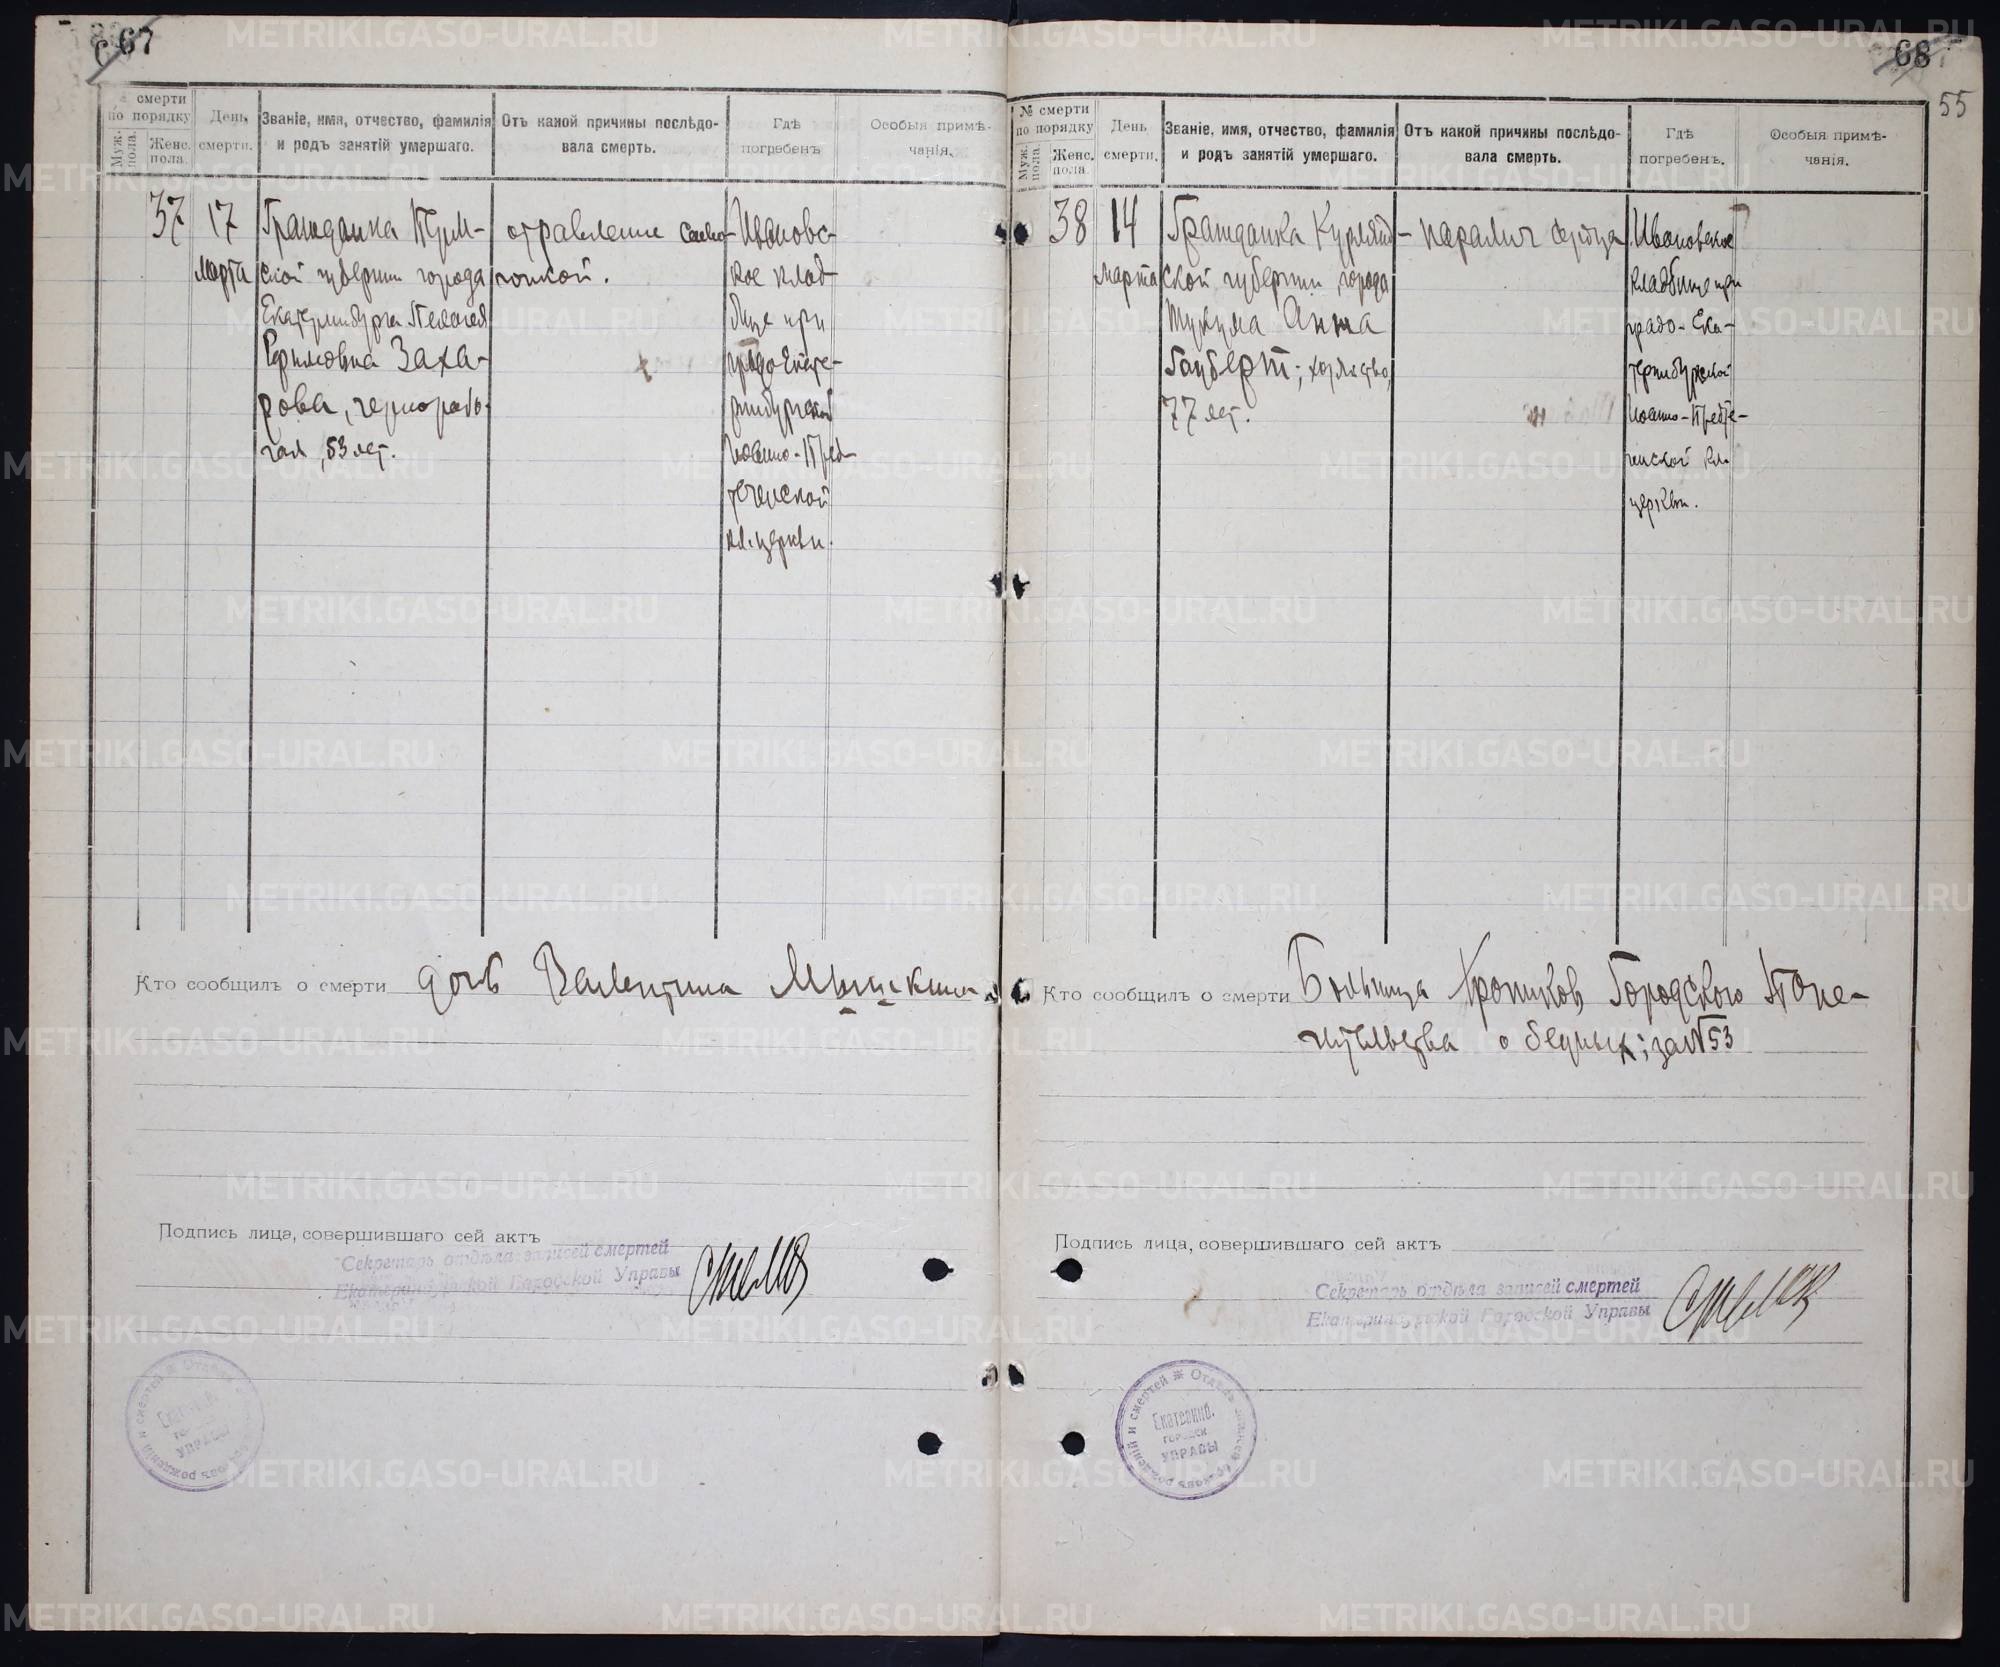 67
№ смерти
по порядку
Муж. пола.
Женс. пола.
День смерти.
Званіе, имя, отчество, фамилія
и родъ занятій умершаго.
Отъ какой причины послѣдо-
вала смерть.
Гдѣ
погребенъ
Особыя примѣ-
чанія.
37
17
марта
Гражданка Перм-
ской губернии города
Екатеринбурга Пелагея
Ефимовна Заха-
рова, чернорабо-
чая, 53 лет.
отравление самo-
гонкой.
Ивановс-
кое клад-
бище при
градо-Екате-
ринбургской
Иоанно-Пред-
теченской
кл. церкви.
Кто сообщилъ о смерти дочь Валентина
Подпись лица, совершившаго сей актъ
Секретарь отдѣла записей смертей
Екатеринбургской Городской Управы
68
55
№ смерти
по порядку
Муж. пола
Женс. пола.
День
смерти.
Званіе, имя, отчество, фамилія
и родъ занятій умершаго.
Отъ какой причины послѣдо-
вала смерть.
Гдѣ
погребенъ.
Особыя примѣ-
чанія.
38
14
марта
Гражданка Курлянд-
ской губернии, города
Туккума Анна
Гауберт; хозяйство,
77 лет.
паралич сердца
Ивановское
кладбище при
градо-Ека-
теринбургской
Иоанно-Предте-
ченской кл.
церкви.
Кто сообщилъ о смерти Больница Хроников Городского Попе-
чительства о бедных; за № 53
Подпись лица, совершившаго сей актъ
Секретарь отдѣла записей смертей
Екатеринбургской Городской Управы
Екатеринб.
городск
УПРАВЫ
METRIKI.GASO-URAL.RU